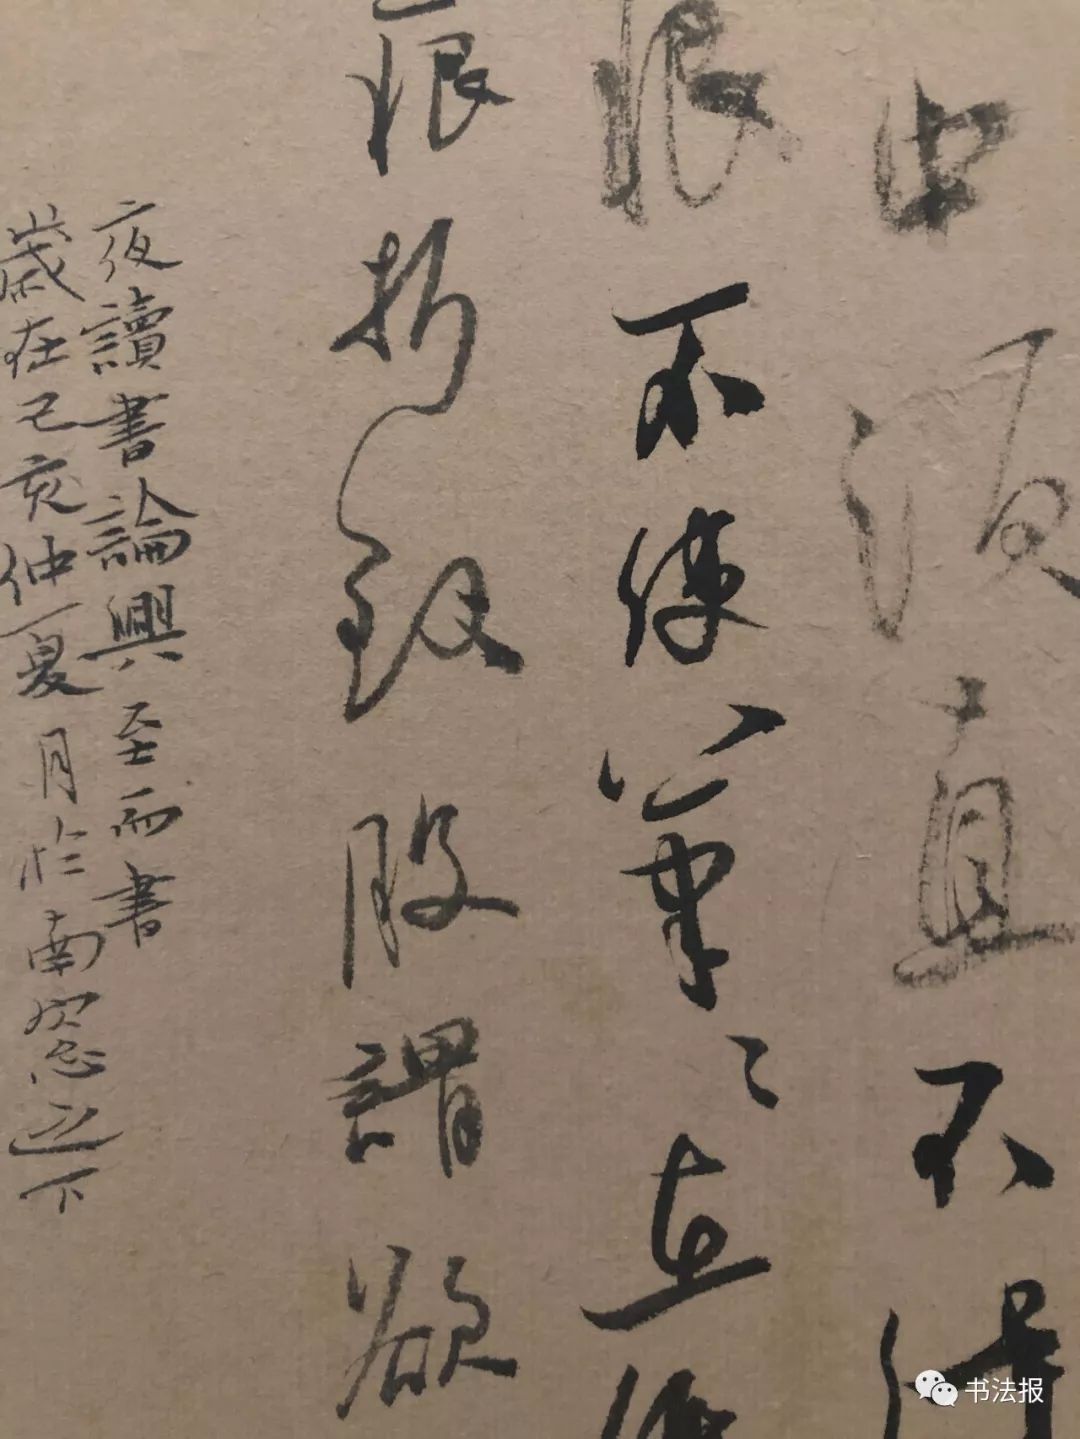 中須直不得
痕不使筆〻在
痕折釵股謂欲
夜讀書論興至而書
歲在己亥仲夏月於南窓之下
书法报